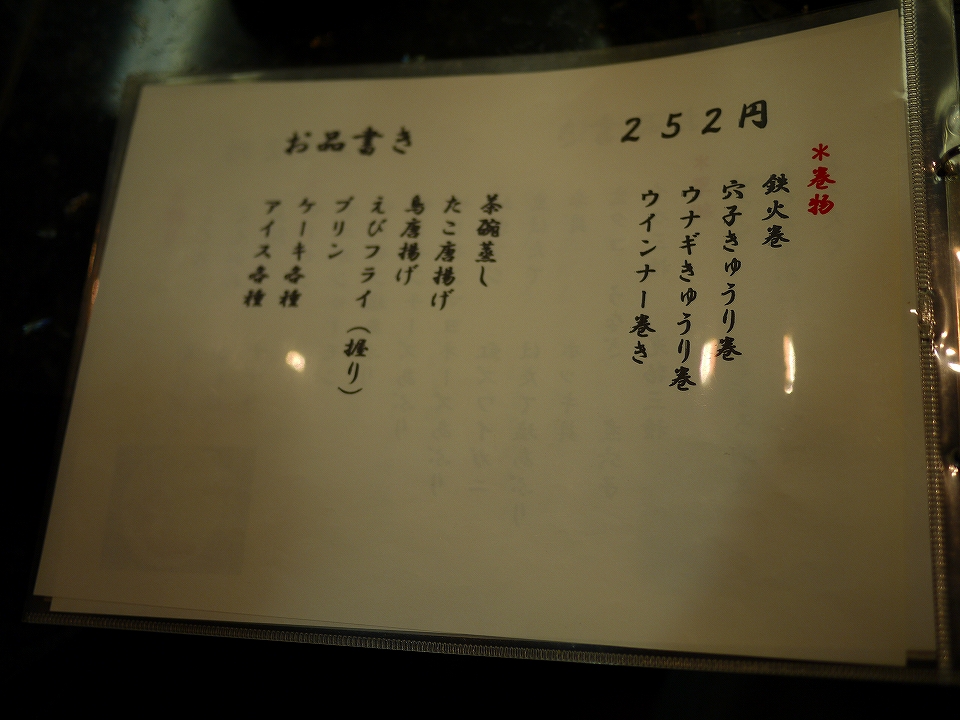 252円
*巻物
鉄火巻
穴子きゅうり巻
ウナギきゅうり巻
ウインナー巻き
お品書き
茶碗蒸し
たこ唐揚げ
鳥唐揚げ
えびフライ(握り)
プリン
ケーキ各種
アイス各種